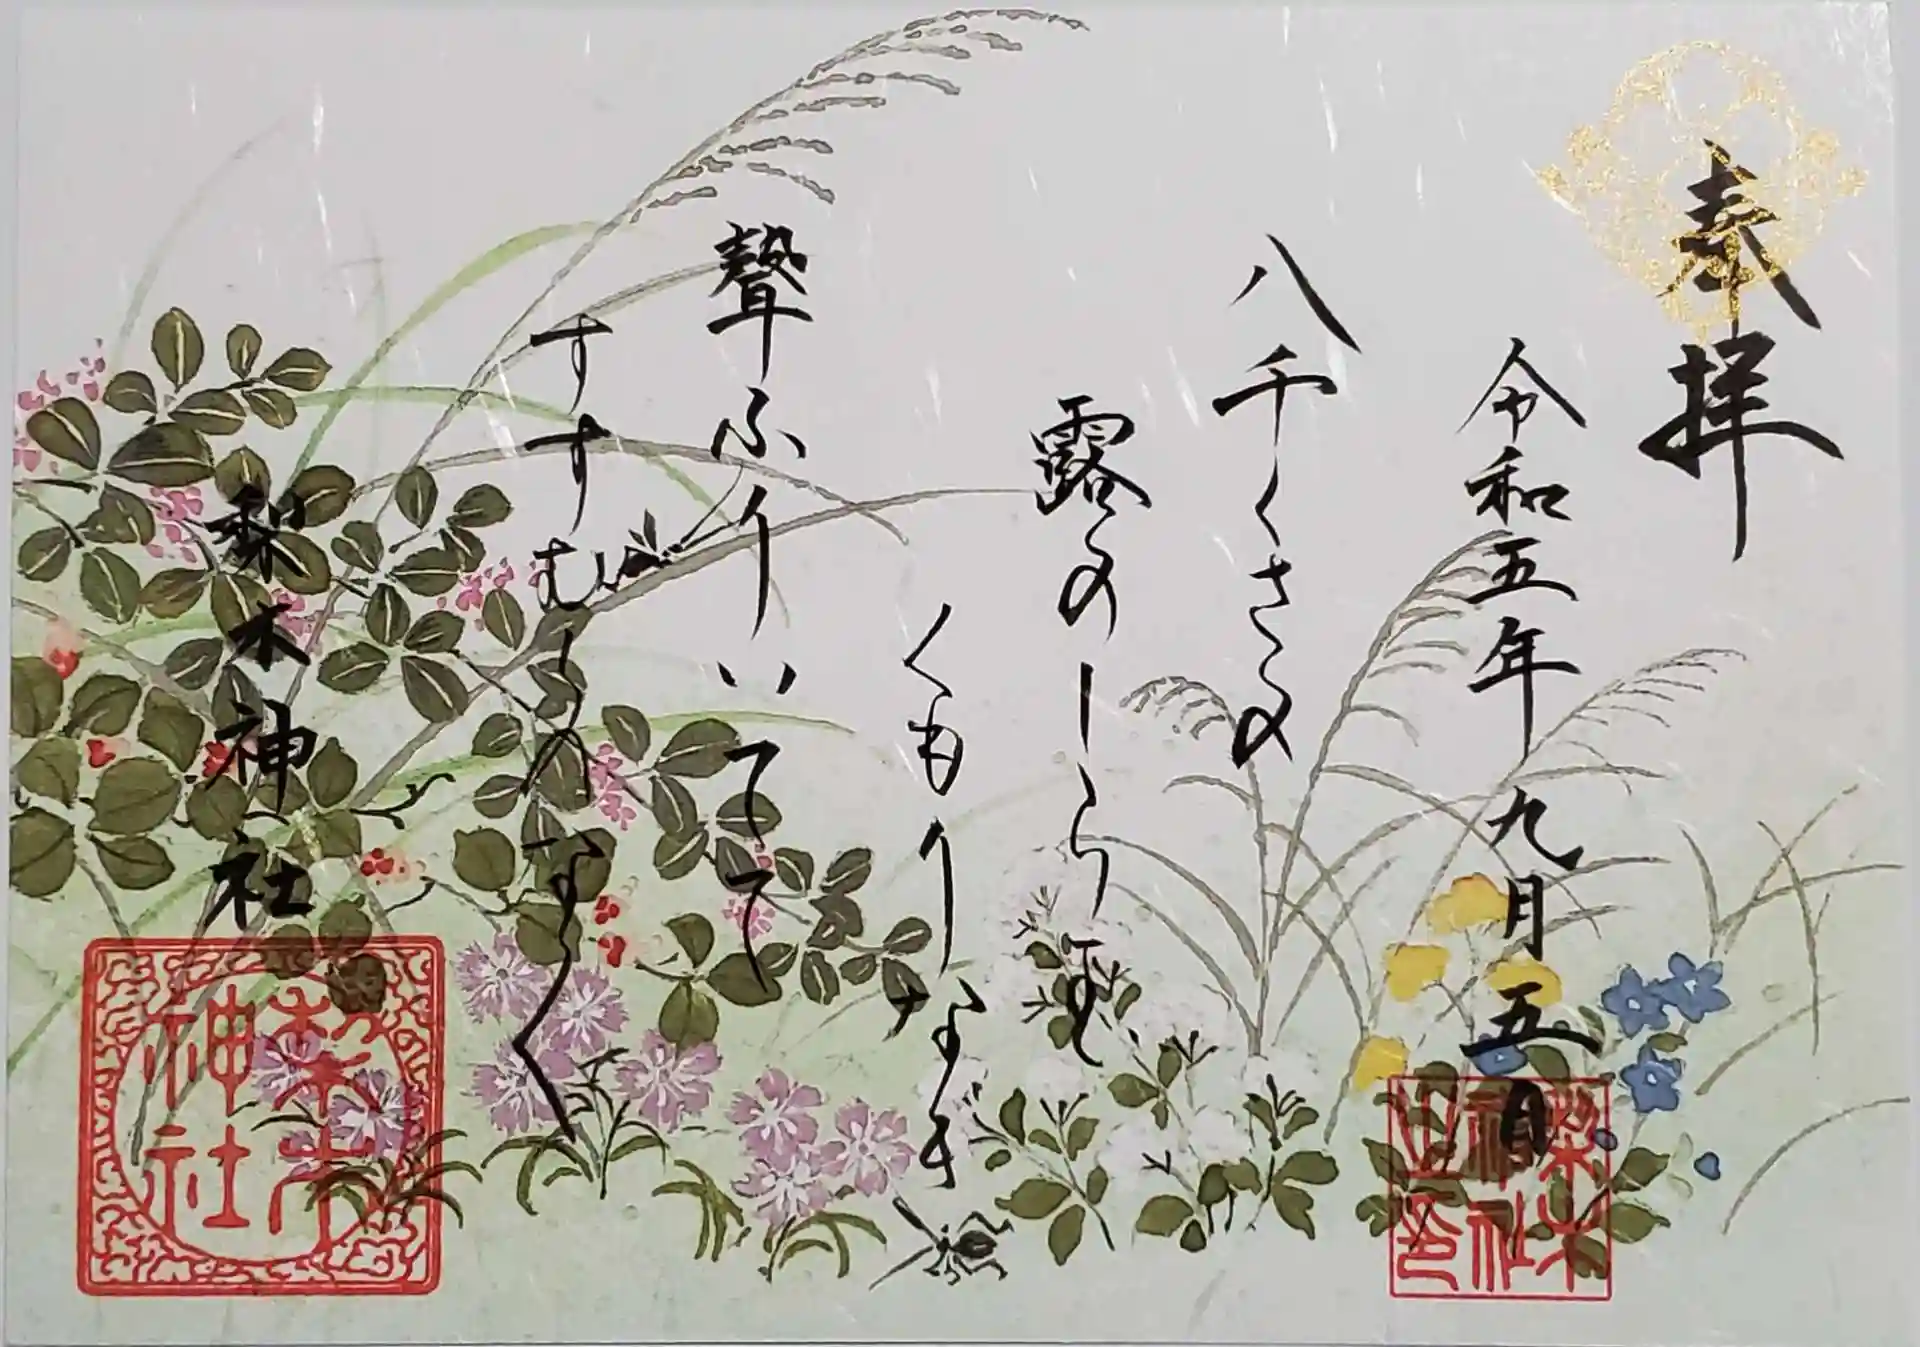 奉拝
令和五年九月五日
八千くさの
露のしら玉
くもりなき
聲ふりいてて
すすむしのなく
梨木神社
梨木
神社
梨木
神社
之印